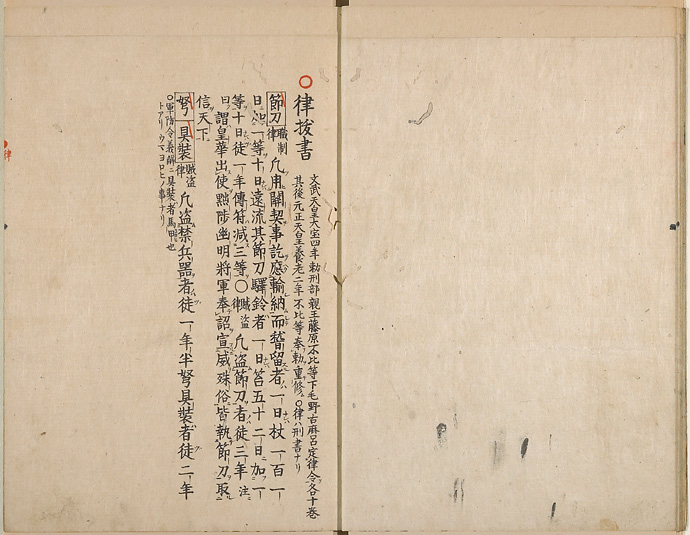 ○律拔書
文武天皇大宝四年勅刑部親王藤原不比等下毛野古麻呂定律令各十巻
其後元正天皇養老二年不比等奉勅重修○律ハ刑書ナリ
節刀職制律凢用關契事訖應輸納而稽留者一日杖一百一
日加一等十日遠流其節刀驛鈴者一日笞五十二日加一
等十日徒一年傳符减三等○賊盗律凢盗節刀者徒三年注
曰謂皇華出使黜陟幽明将軍奉詔宣威殊俗皆執節刀取
信天下
弩具装賊盗律凢盗禁兵器者徒一年半弩具装者徒二年
○軍防令義解ニ具装者馬甲也
トアリウマヨロヒノ事ナリ
律